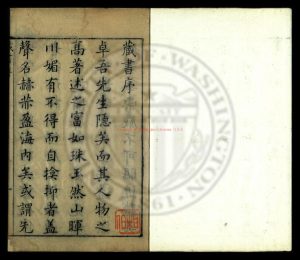 藏書序
卓吾先生隱矣而其人物之
高著述之富如珠玉然山暉
川媚有不得而自揜抑者蓋
聲名赫〻盈海內矣或謂先
WASHINGTON